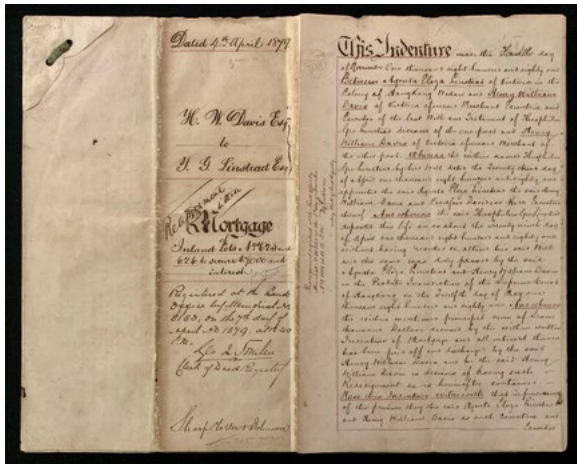 Dated 4th April 1879.
H. W. Davis Esq
to
T. G. Linstead Esq
Reassignment within
Mortgage
Inland Lots No 623 and
626 to secure $7,000 and
interest
Registered at the Land
Office by Memorial No
on the 7th day of
April AD 1879. at
P.M.
Clerk of Deed Registry
Sharp Toller & Johnson
This Indenture made the Twelfth day
of One thousand eight hundred and eighty one
Between Agneta Eliza Linstead of Victoria in the
Colony of Hongkong Widow and Henry William
Davis of Victoria aforesaid Merchant Executrix and
Executor of the last Will and Testament of Theophilus
Gee Linstead deceased of the one part and Henry
William Davis of Victoria aforesaid Merchant of
the other part. Whereas the within named Theophilus
Gee Linstead by his Will dated the Twenty third day
of April one thousand eight hundred and eighty one
appointed the said Agneta Eliza Linstead the said Henry
William Davis and Davison Executors
thereof And whereas the said Theophilus Gee Linstead
departed this life on or about the Twenty ninth day
of April one thousand eight hundred and eighty one
without having revoked or altered his said Will
and the same was duly proved by the said
Agneta Eliza Linstead and Henry William Davis
in the Probate Jurisdiction of the Supreme Court
of Hongkong on the Twelfth day of May one
thousand eight hundred and eighty one And whereas
the within mentioned principal sum of Seven
thousand Dollars secured by the within written
Indenture of Mortgage and all interest thereon
has been paid off and discharged by the said
Henry William Davis and he the said Henry
William Davis is desirous of having such
Reassignment as is hereinafter contained
Now this Indenture witnesseth that in pursuance
of the premises they the said Agneta Eliza Linstead
and Henry William Davis as such Executrix and
Executor